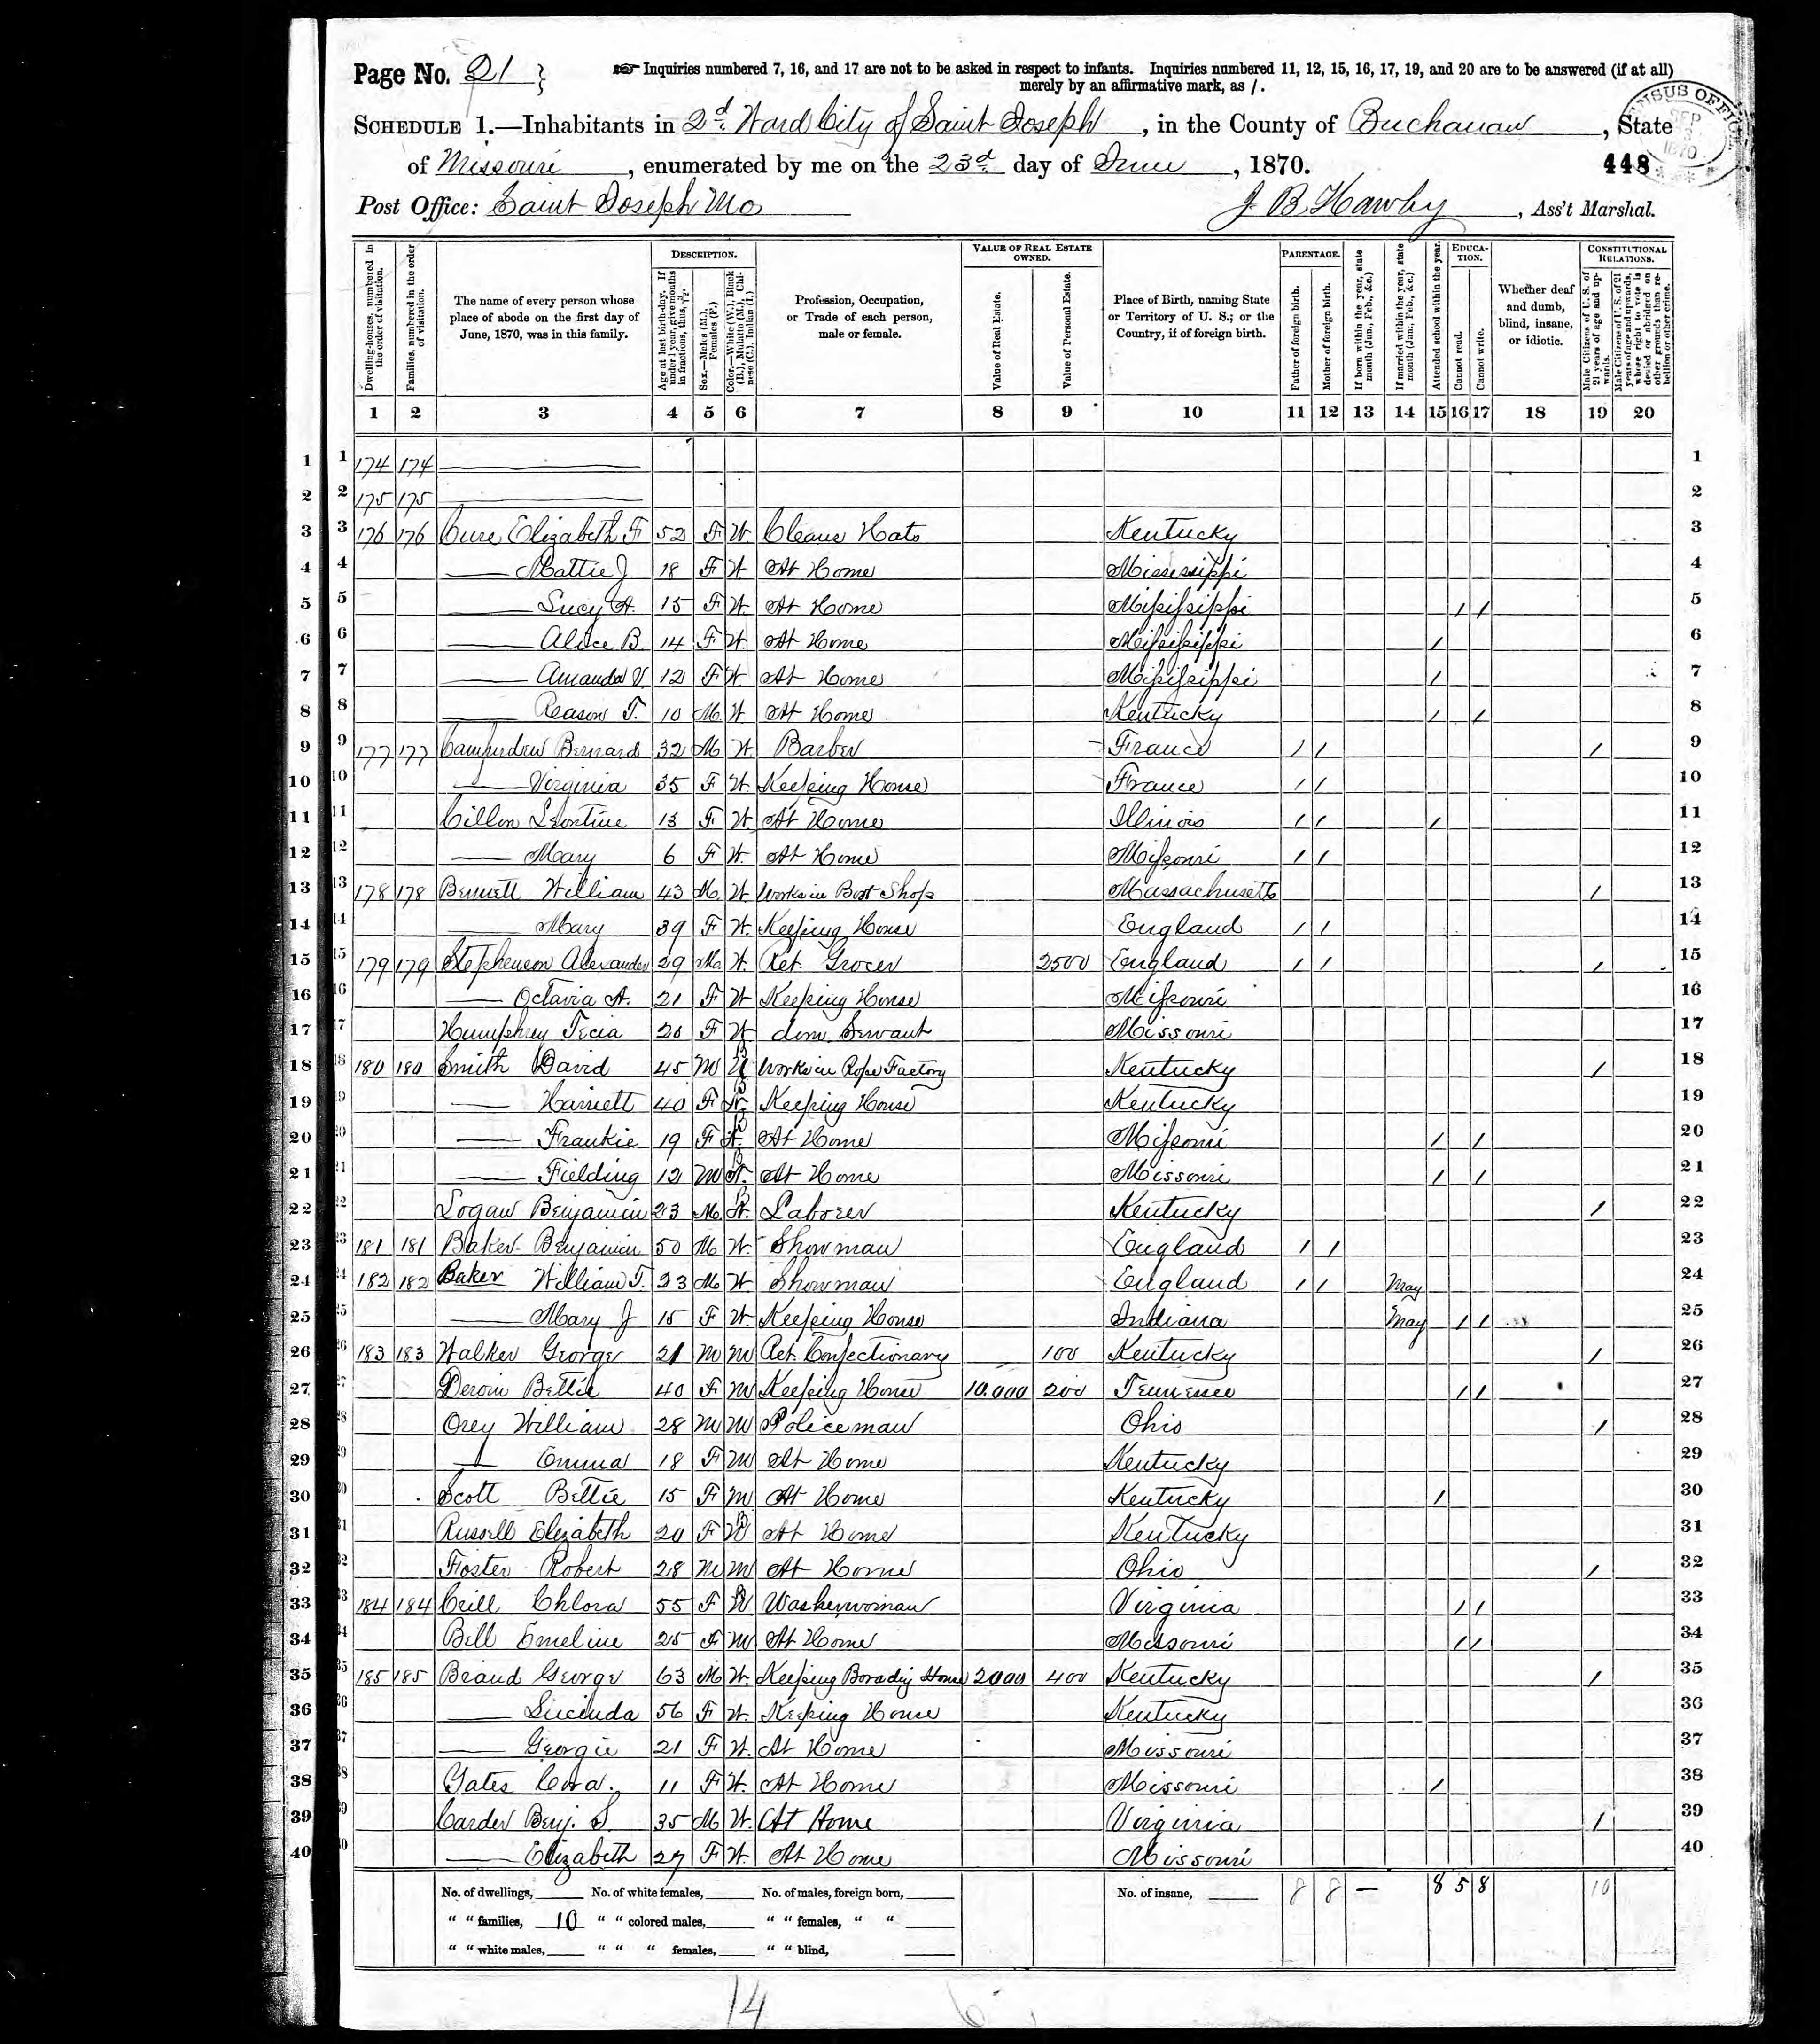 Page No. 21 }
Inquiries numbered 7, 16, and 17 are not to be asked in respect to infants. Inquiries numbered 11, 12, 15, 16, 17, 19, and 20 are to be answered (if at all)
merely by an affirmative mark, as /.
CENSUS OFFICE SEP 1870
SCHEDULE 1.—Inhabitants in 2d. Ward City of Saint Joseph, in the County of Buchanan, State
of Missouri, enumerated by me on the 23d. day of June, 1870.
448
Post Office: Saint Joseph Mo
J B Hawley, Ass't Marshal.
Dwelling-houses, numbered in the order of visitation.
Families, numbered in the order of visitation.
The name of every person whose place of abode on the first day of June, 1870, was in this family.
DESCRIPTION.
Age at last birth-day. If under 1 year, give months in fractions, thus, 3/12.
Sex.—Males (M.), Females (F.)
Color.—White (W.), Black (B.), Mulatto (M.), Chinese (C.), Indian (I.)
Profession, Occupation, or Trade of each person, male or female.
VALUE OF REAL ESTATE OWNED.
Value of Real Estate.
Value of Personal Estate.
Place of Birth, naming State or Territory of U. S.; or the Country, if of foreign birth.
PARENTAGE.
Father of foreign birth.
Mother of foreign birth.
If born within the year, state month (Jan., Feb., &c.)
If married within the year, state month (Jan., Feb., &c.)
Attended school within the year.
EDUCATION.
Cannot read.
Cannot write.
Whether deaf and dumb, blind, insane, or idiotic.
CONSTITUTIONAL RELATIONS.
Male Citizens of U. S. of 21 years of age and upwards.
Male Citizens of U. S. of 21 years of age and upwards, whose right to vote is denied or abridged on other grounds than rebellion or other crime.
1 2 3 4 5 6 7 8 9 10 11 12 13 14 15 16 17 18 19 20
1 1 174 174 1
2 2 175 175 2
3 3 176 176 Cure Elizabeth F 52 F W. Cleans Hats Kentucky 3
4 4 Mattie J 18 F W At Home Mississippi 4
5 5 Lucy A. 15 F W. At Home Mississippi / / 5
6 6 Alice B. 14 F W. At Home Mississippi / 6
7 7 Amanda V. 12 F W At Home Mississippi / 7
8 8 Reason T. 10 M. W At Home Kentucky / / 8
9 9 177 177 Bernard 32 M W. Barber France / / / 9
10 10 Virginia 35 F W. Keeping House France / / 10
11 11 Cillon Leontine 13 F. W At Home Illinois / / / 11
12 12 Mary 6 F W. At Home Missouri / / 12
13 13 178 178 Bennett William 43 M. W. Works in Boot Shop Massachusetts / 13
14 14 Mary 39 F W. Keeping House England / / 14
15 15 179 179 Stephenson Alexander 29 M. W. Ret. Grocer 2500 England / / / 15
16 16 Octavia A. 21 F W Keeping House Missouri 16
17 17 Humphrey Tecia 20 F W dom. Servant Missouri 17
18 18 180 180 Smith David 45 M B Works in Rope Factory Kentucky / 18
19 19 Harriett 40 F B Keeping House Kentucky 19
20 20 Frankie 19 F B At Home Missouri / / 20
21 21 Fielding 12 M B At Home Missouri / / 21
22 22 Logan Benjamin 23 M. B Laborer Kentucky / 22
23 23 181 181 Baker Benjamin 50 M W. Showman England / / 23
24 24 182 182 Baker William T. 23 M W. Showman England / / May 24
25 25 Mary J 15 F W. Keeping House Indiana May / / 25
26 26 183 183 Walker George 21 M M Ret. Confectionary 100 Kentucky / 26
27 27 Deroin Bettie 40 F M Keeping House 10.000 200 Tennessee / / 27
28 28 Orey William 28 M M Policeman Ohio / 28
29 29 Emma 18 F M At Home Kentucky 29
30 30 Scott Bettie 15 F M At Home Kentucky / 30
31 31 Russell Elizabeth 20 F B At Home Kentucky 31
32 32 Foster Robert 28 M M At Home Ohio / 32
33 33 184 184 Crill Chlora 55 F B Washerwoman Virginia / / 33
34 34 Bell Emeline 25 F M At Home Missouri / / 34
35 35 185 185 Braud George 63 M W. Keeping Borading House 2000 400 Kentucky / 35
36 36 Lucinda 56 F W. Keeping House Kentucky 36
37 37 Georgie 21 F W. At Home Missouri 37
38 38 Yates Cora. 11 F W. At Home Missouri / 38
39 39 Carder Benj. S. 35 M W. At Home Virginia / 39
40 40 Elizabeth 27 F W. At Home Missouri 40
No. of dwellings, No. of white females, No. of males, foreign born, No. of insane, 8 8 — 8 5 8 10
" " families, 10 " " colored males, " " females, " "
" " white males, " " " females, " " blind,
14